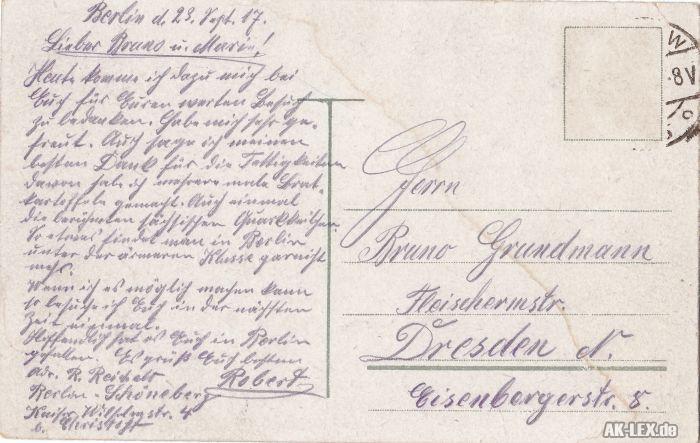 Berlin d. 23. Sept. 17.
Lieber Bruno u. Marie!
Heute komme ich dazu mich bei
Euch für Euren werten Besuch
zu bedanken. Habe mich sehr ge-
freut. Auch sage ich meinen
besten Dank für die Fettigkeiten
davon hab ich mehrere male Brat-
kartoffeln gemacht. Auch einmal
die berühmten sächsischen
So etwas findet man in Berlin
unter der ärmeren Klasse garnicht
Wenn ich es möglich machen kann
so besuche ich Euch in der nächsten
Zeit einmal.
Hoffendlich hat es Euch in Berlin
gefallen. Es grüßt Euch bestens
Robert
Adr. R. Reichelt
Berlin-Schöneberg
Kaiser Wilhelmstr. 4
Herrn
Bruno Grundmann
Fleischermstr.
Dresden N.
Eisenbergerstr. 8.
W
8V
AK-LEX.de